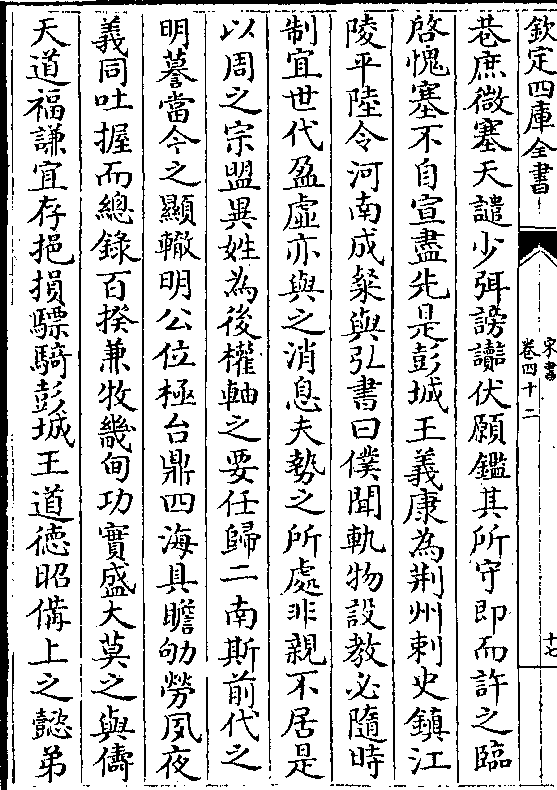 欽定四庫全書
宋書
卷四十二
十七
巷庶微塞天譴少弭謗讟伏願鑑其所守即而許之臨
啓愧塞不自宣盡先是彭城王義康為荆州刺史鎮江
陵平陸令河南成粲與弘書曰僕聞軌物設教必隨時
制宜世代盈虛亦與之消息夫勢之所處非親不居是
以周之宗盟異姓為後權軸之要任歸二南斯前代之
明謩當今之顯轍明公位極台鼎四海具瞻劬勞夙夜
義同吐握而總錄百揆兼牧畿甸功實盛大莫之與儔
天道福謙宜存挹損驃騎彭城王道徳昭備上之懿弟